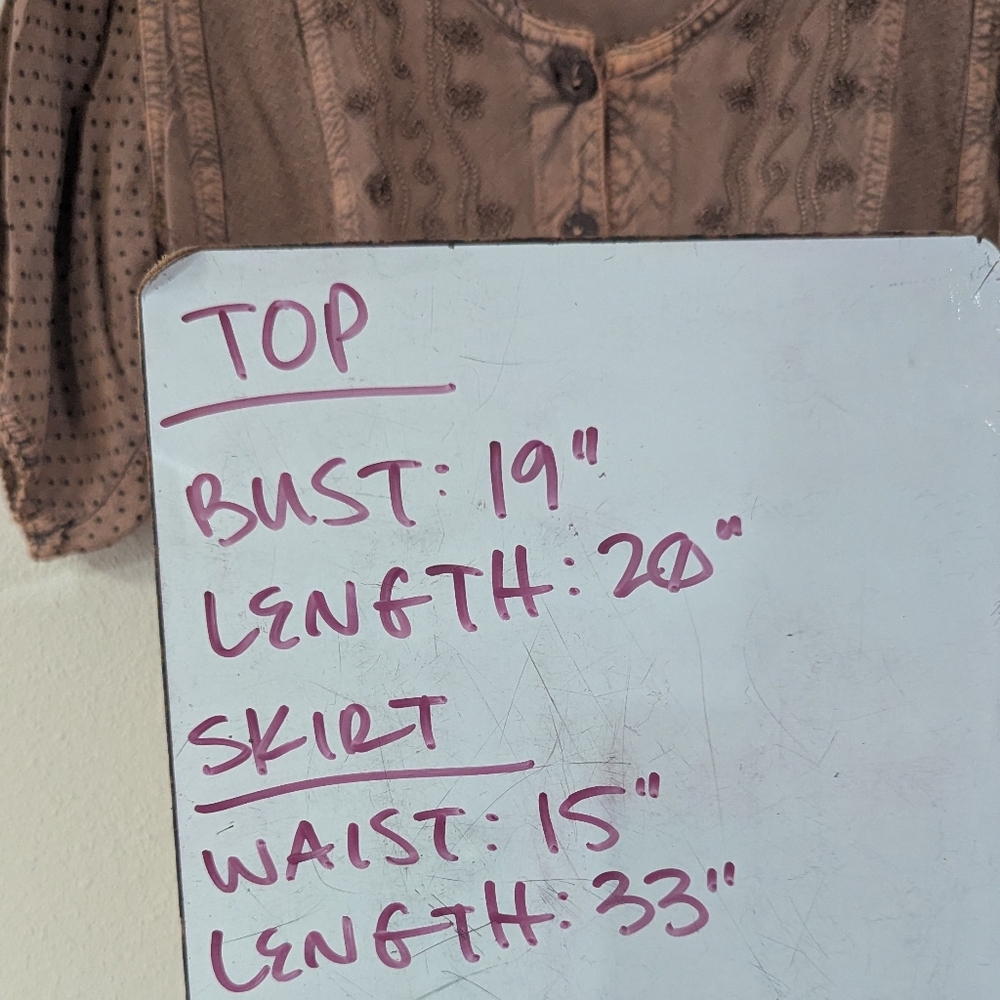 TOP
BUST: 19"
LENGTH: 20"
SKIRT
WAIST: 15"
LENGTH: 33"